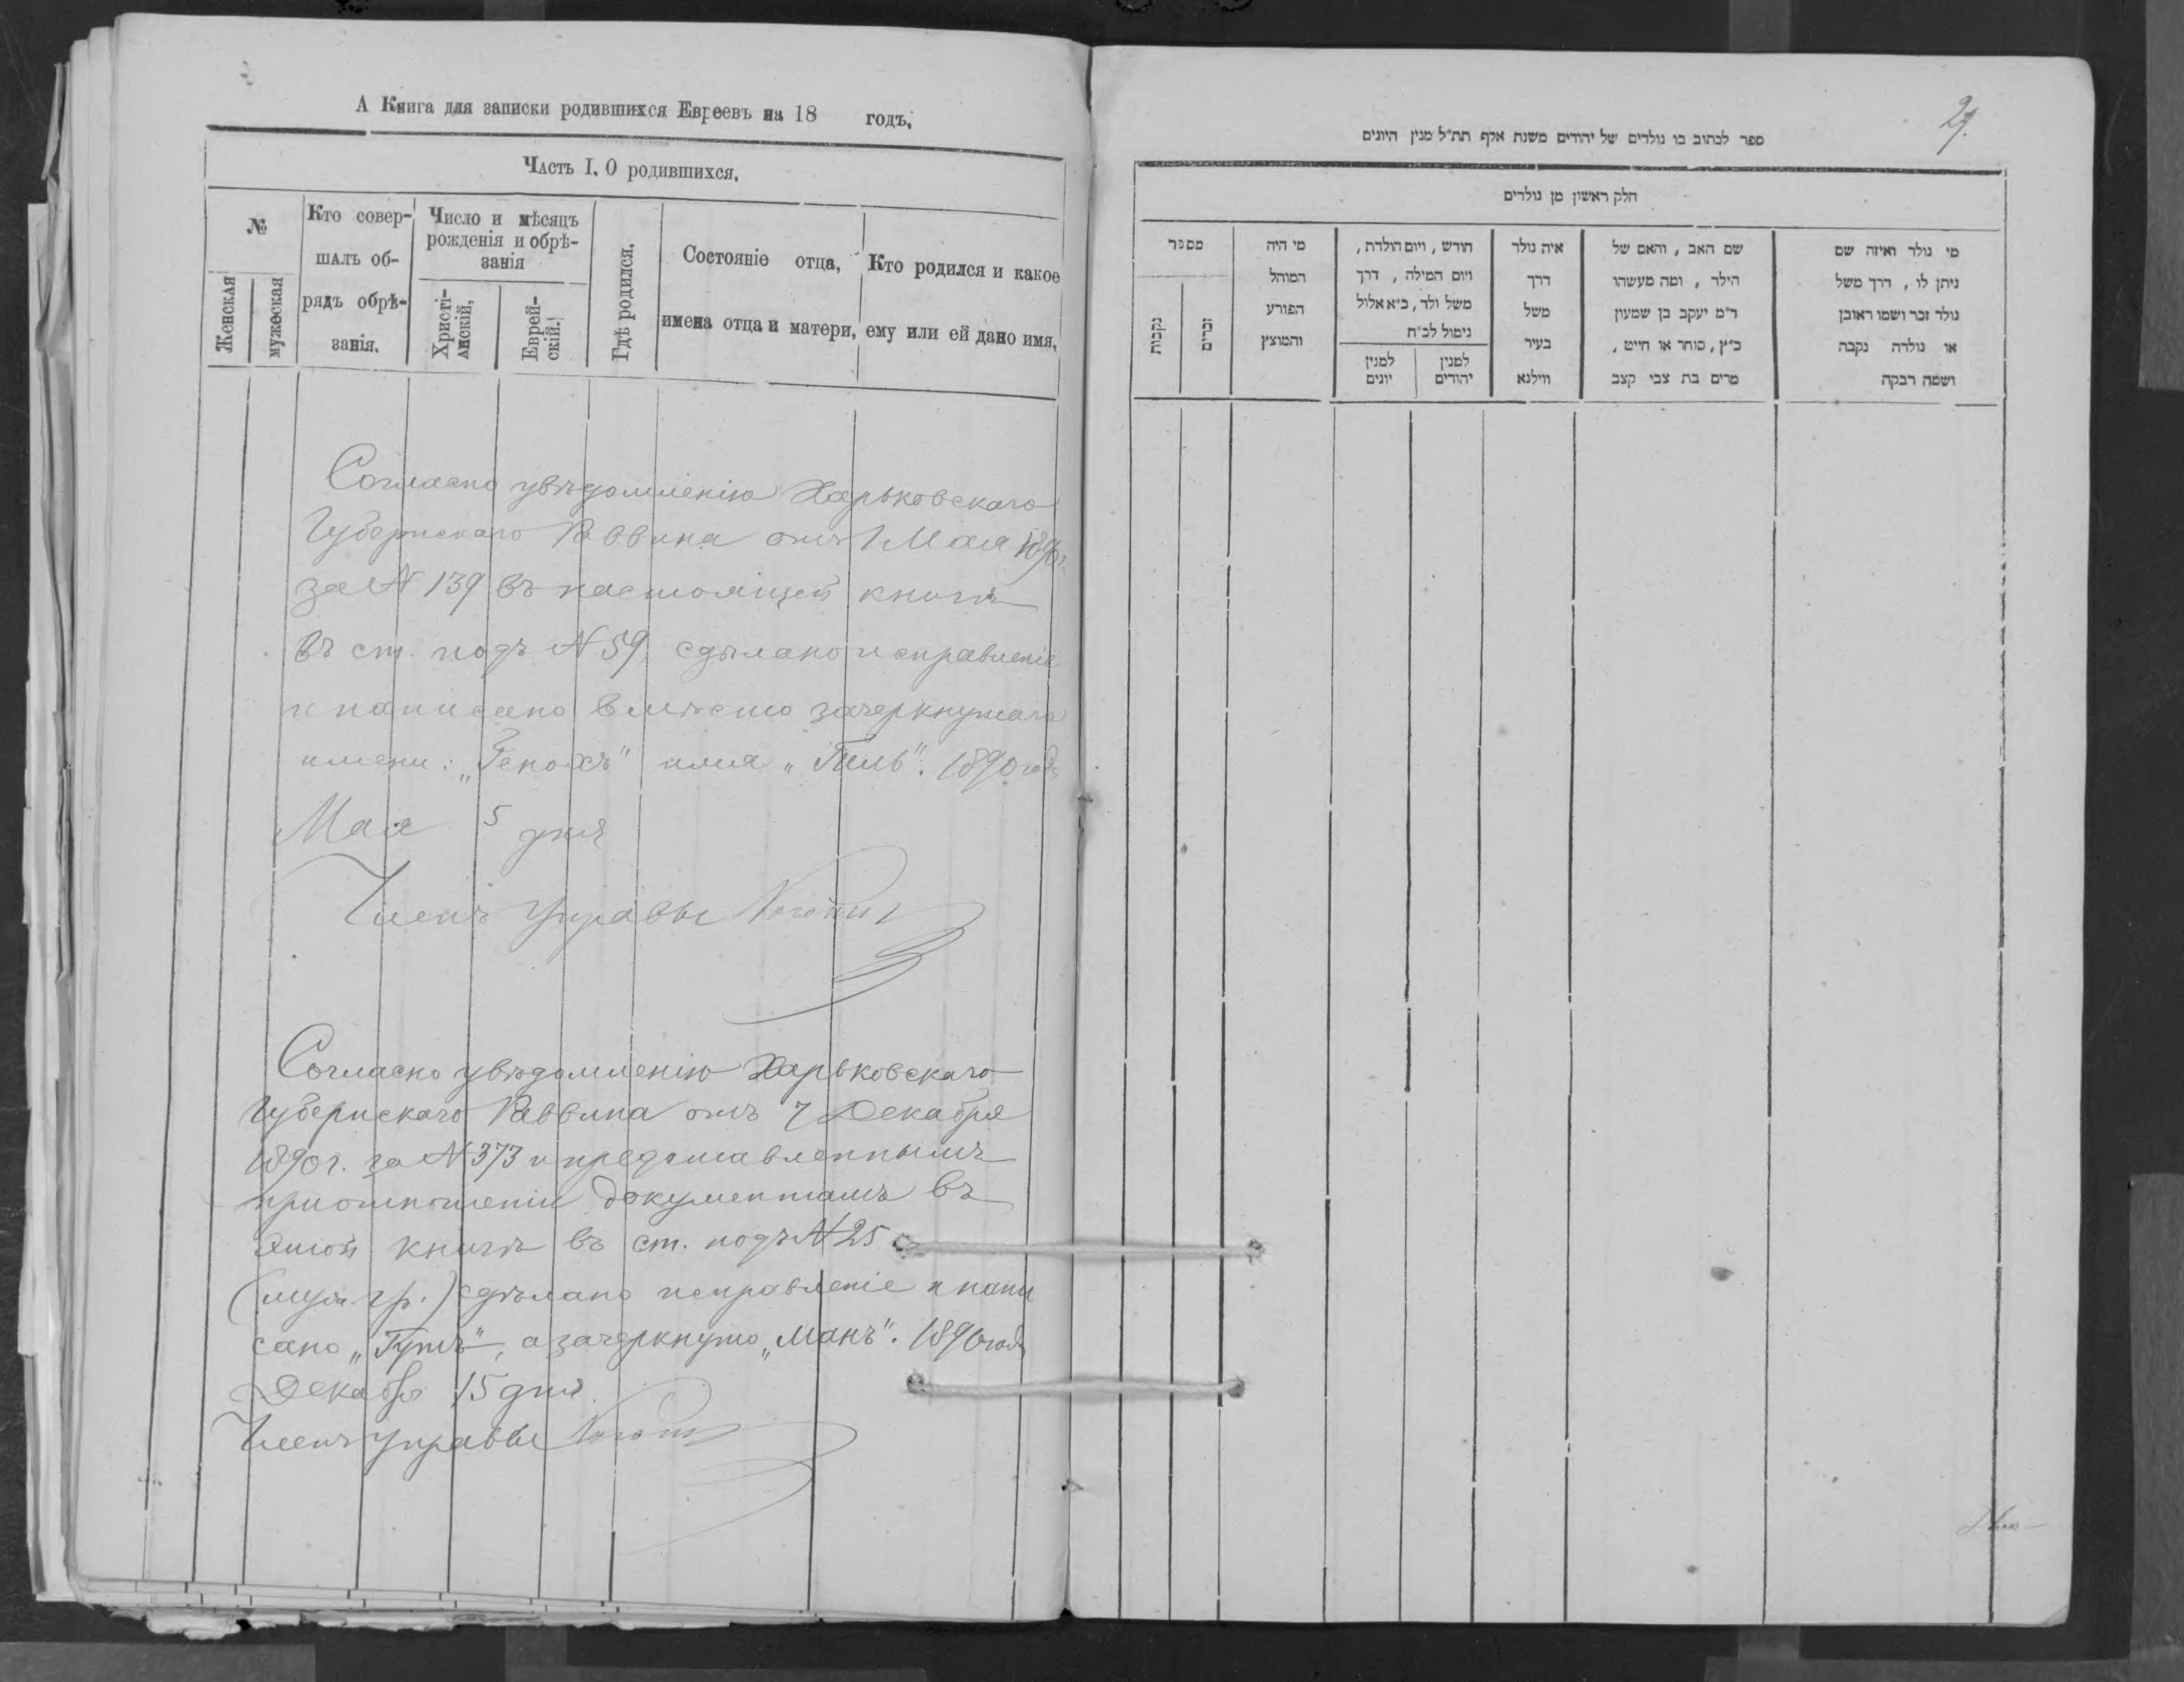 А Книга для записки родившихся Евреевъ на 18 годъ.
Часть I. О родившихся.
№
Женская
мужеская
Кто совер-
шалъ об-
рядъ обрѣ-
занія.
Число и мѣсяцъ
рожденія и обрѣ-
занія
Христі-
анскій,
Еврей-
скій.
Гдѣ родился.
Состояніе отца,
имена отца и матери,
Кто родился и какое
ему или ей дано имя,
Согласно увѣдомленію Харьковскаго
Губернскаго Раввина отъ 1 Мая 1890 г.
за № 139 въ настоящей книгѣ
въ ст. подъ № 59, сдѣлано исправленіе
и написано вмѣсто зачеркнутаго
имени: „Генохъ" имя „Гиль". 1890 года
Мая 5 дня
Членъ Управы
Согласно увѣдомленію Харьковскаго
Губернскаго Раввина отъ 7 Декабря
1890 г. за № 373 и представленнымъ
при отношеніи документамъ въ
этой книгѣ въ ст. подъ № 25
(муж. гр.) сдѣлано исправленіе и напи
сано „Гутъ", а зачеркнуто „Манъ". 1890 года
Декабря 15 дня.
Членъ Управы
29.
ספר לכתוב בו נולדים של יהודים משנת אלף תת״ל מנין היונים
חלק ראשון מן נולדים
מספר
נקבות
זכרים
מי היה
המוהל
הפורע
והמוצץ
חורש, ויום הולדת,
ויום המילה, דרך
משל ולד, כ״א אלול
נימול לכ״ח
למנין
יונים
למנין
יהודים
איה נולד
דרך
משל
בעיר
ווילנא
שם האב, והאם של
הילד, ומה מעשהו
ר״מ יעקב בן שמעון
כ״ץ, סוחר או חייט,
מרים בת צבי קצב
מי נולד ואיזה שם
ניתן לו, דרך משל
נולד זכר ושמו ראובן
או נולדה נקבה
ושמה רבקה